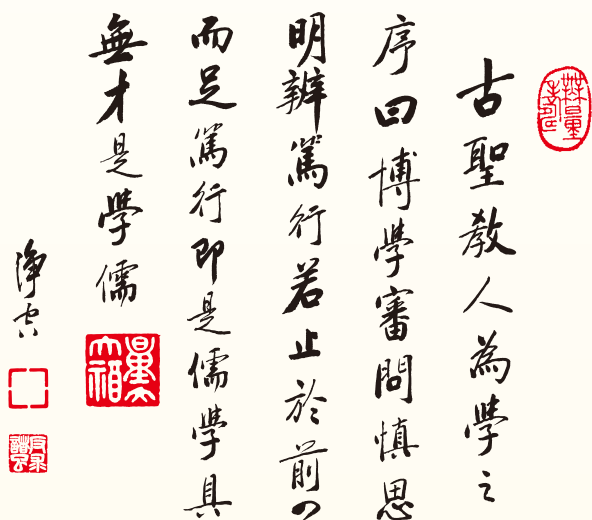 古聖教人為學之
序曰博學審問慎思
明辨篤行若止於前
而足篤行即是儒學具
無才是學儒
淨空